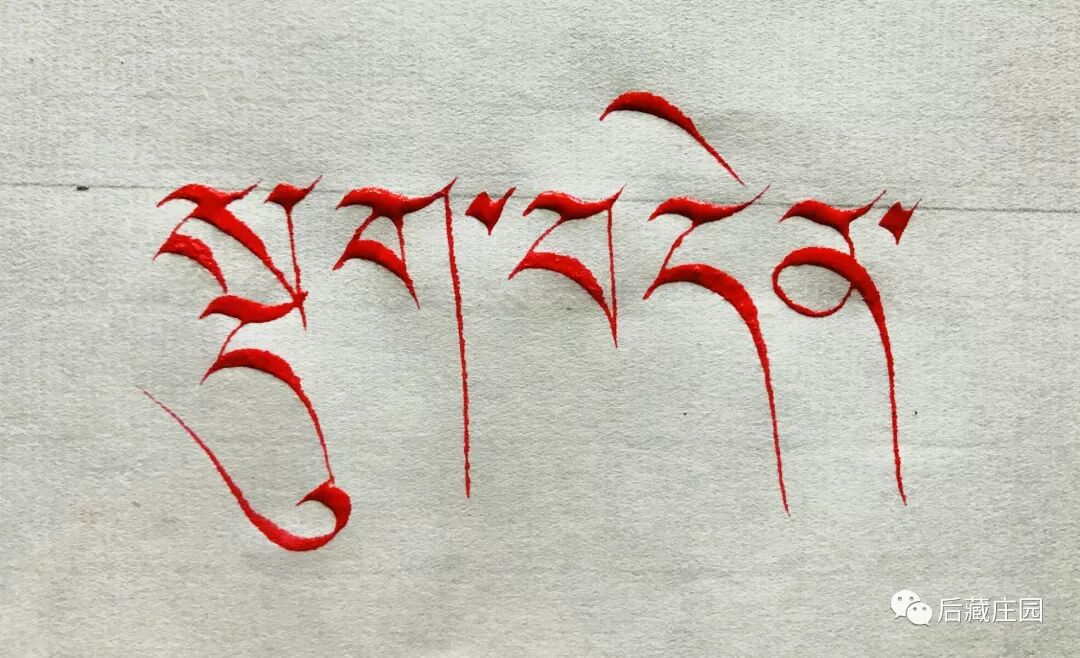 སྡུག་བདེན་
后藏庄园